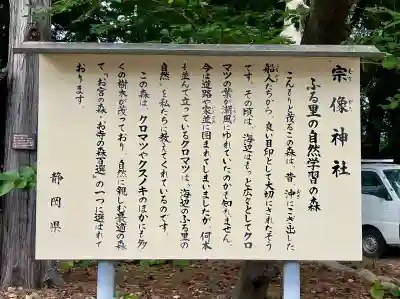 宗像神社
むな かた
ふる里の自然学習の森
こんもりと茂るこの森は、昔、沖にこぎ出した
船人たちから、良い目印として大切にされたそう
です。その頃は、海辺はもっと広々としてクロ
マツの葉が潮風にゆれていたのかも知れません。
今は道路や家並に囲まれてしまいましたが、何本
も並んで立っているクロマツは、"海辺のふる里の
自然"を私たちに教えてくれているのです。
この森は、クロマツやクスノキのほかにも多
くの樹木が茂っており、自然に親しむ最適の森
として、"お宮の森・お寺の森百選"の一つに選ばれて
おります。
静岡県